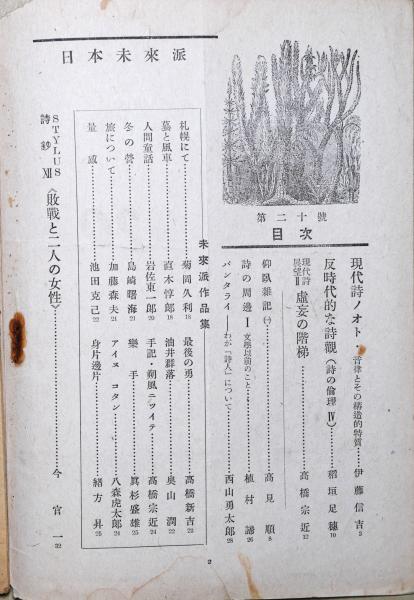 日本未來派
第二十號
目次
現代詩ノオト・音律とその構造的特質……伊藤信吉 2
反時代的な詩觀（詩の倫理 Ⅳ）……稻垣足穗 10
現代詩展望Ⅱ 虛妄の階梯……高橋宗近 12
仰臥雜記㈠……高見順 8
詩の周邊 Ⅰ 文學以前のこと……植村諦 26
パンタライ――わが「詩人」について……西山勇太郎 28
未來派作品集
札幌にて……菊岡久利 18
最後の勇……高橋新吉 22
墓と風車……直木惇郎 18
油井群落……奥山潤 22
人間童話……岩佐東一郎 20
手記・朔風ニツイテ……高橋宗近 24
冬の營……島崎曙海 21
樂手……眞杉盛雄 25
旅について……加藤森夫 21
アイヌ コタン……八森虎太郎 24
量感……池田克己 22
身片邊片……緒方昇 25
STYLUS
詩鈔 Ⅻ 《敗戰と二人の女性》……今官一 32
2